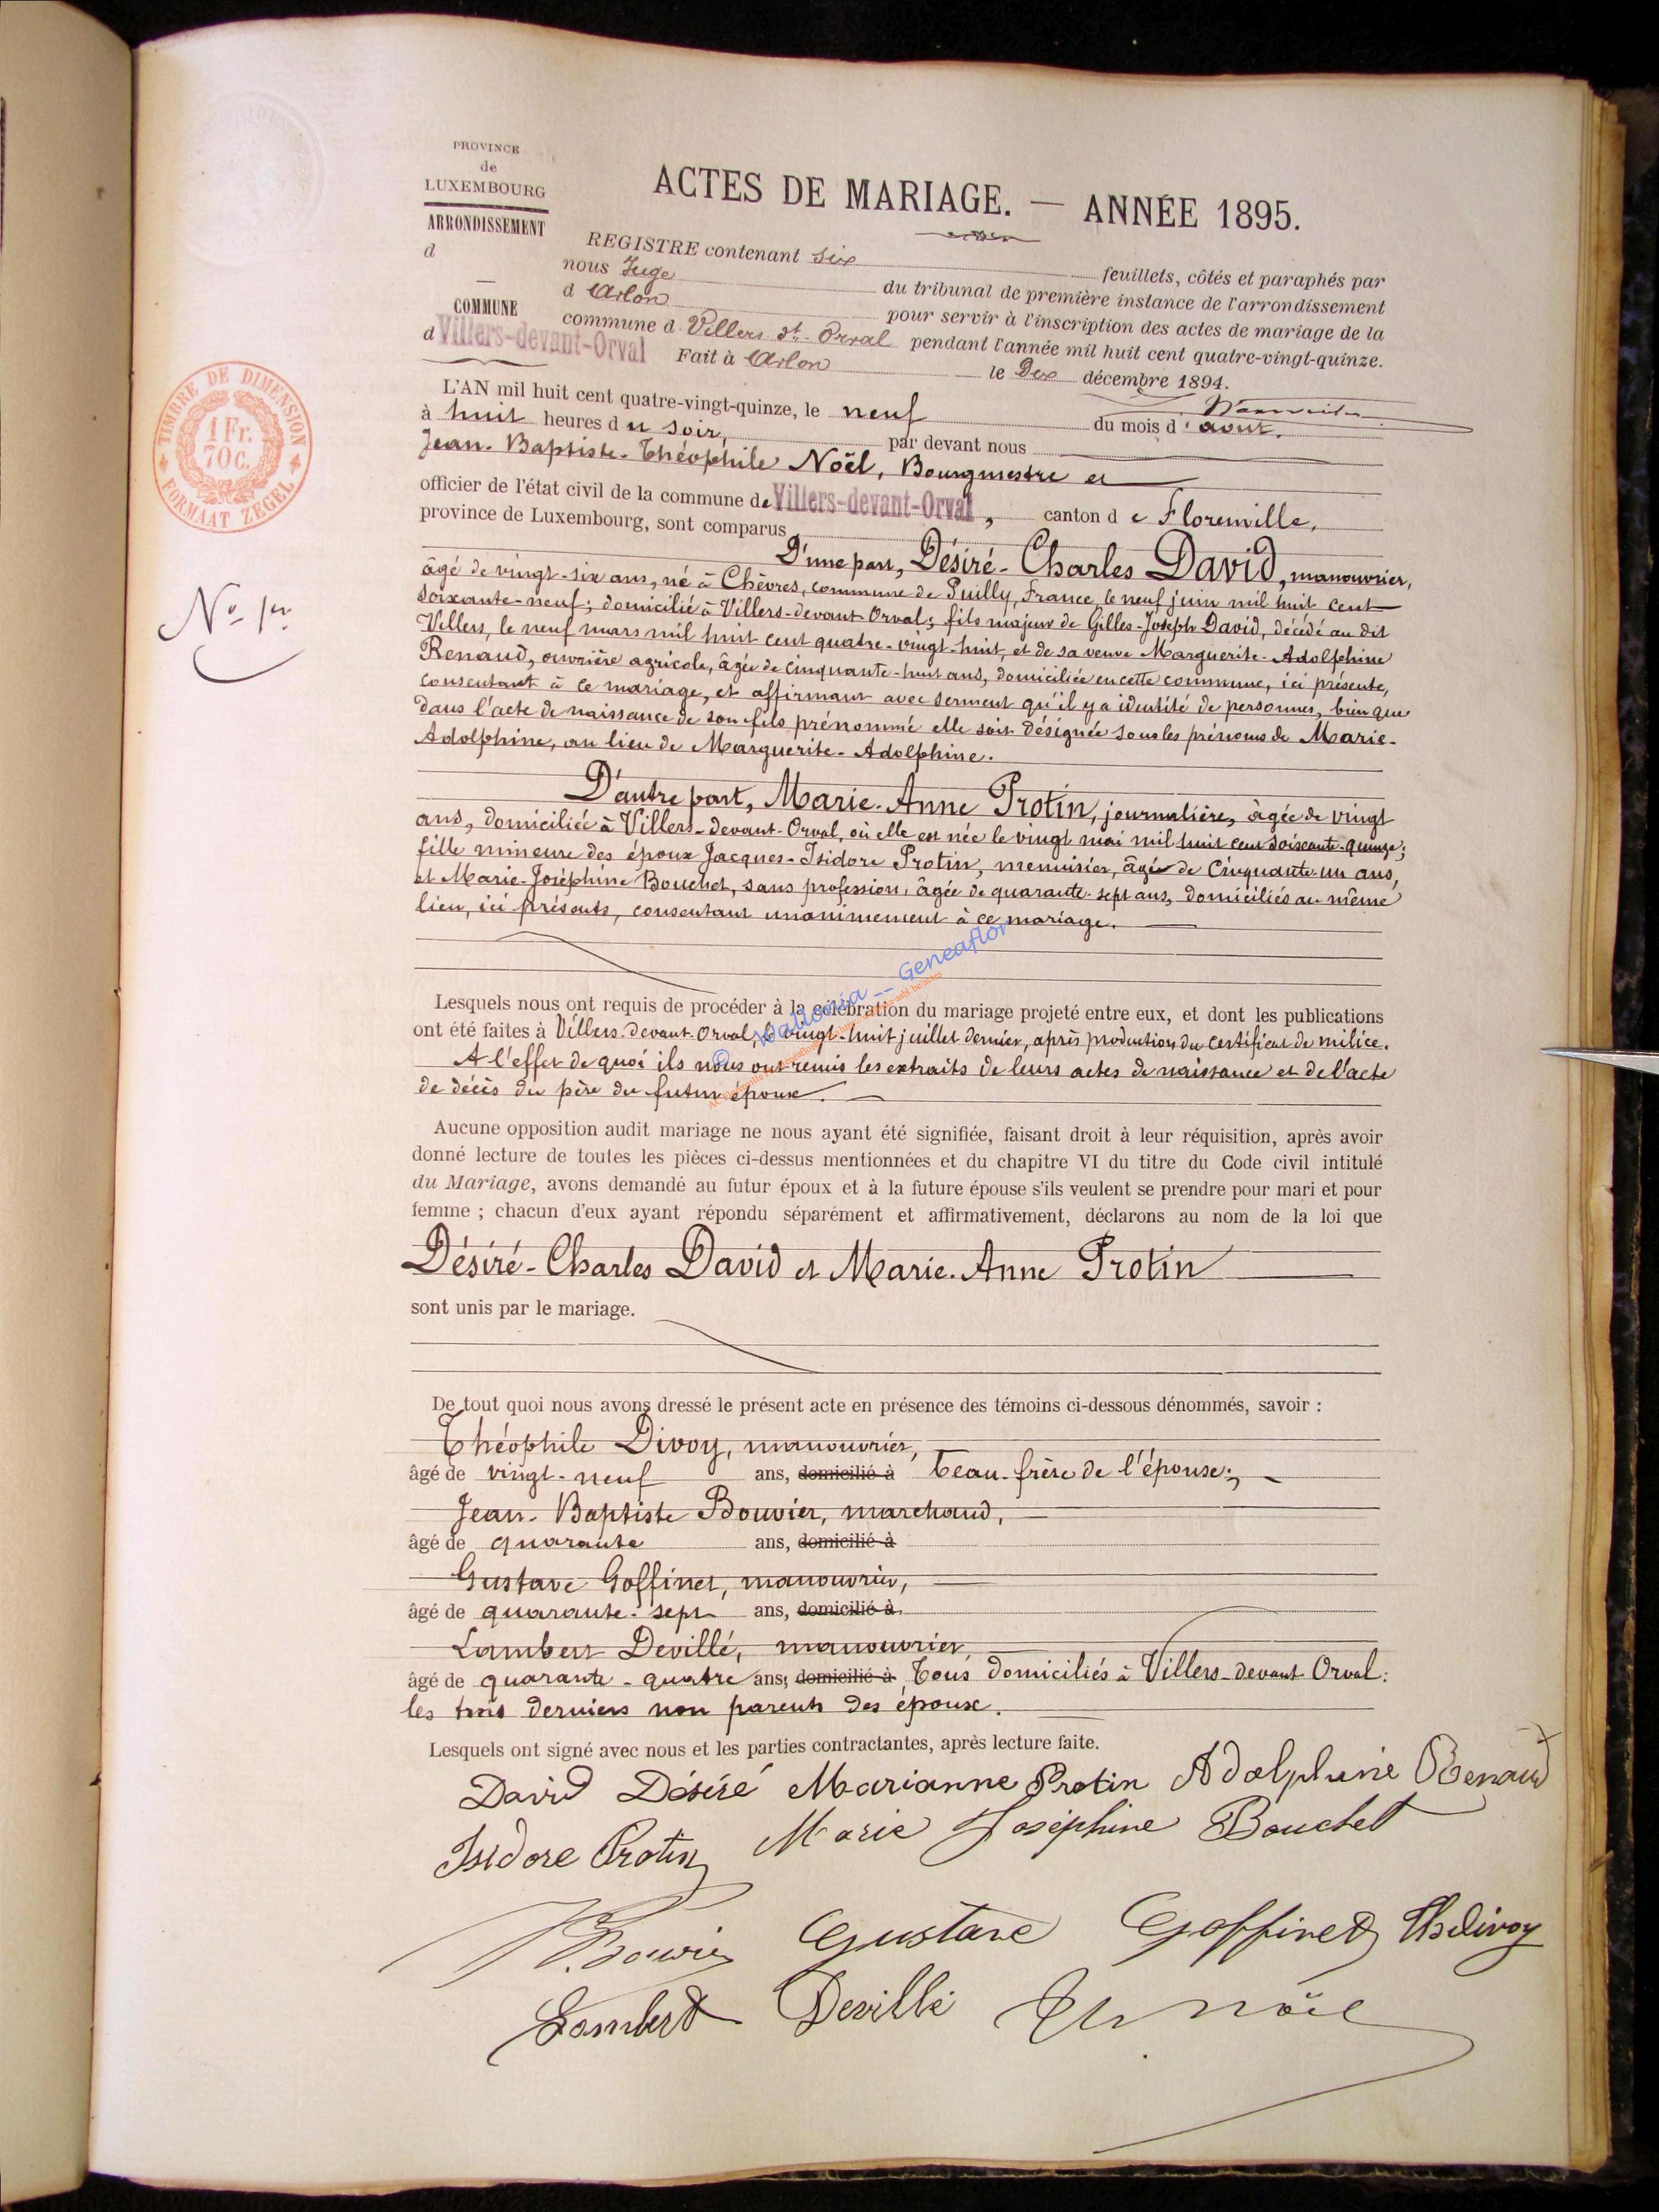 PROVINCE
de
LUXEMBOURG
ARRONDISSEMENT
d
COMMUNE
d Villers-devant-Orval
ACTES DE MARIAGE. — ANNÉE 1895.
REGISTRE contenant six feuillets, côtés et paraphés par
nous Juge du tribunal de première instance de l'arrondissement
d Arlon pour servir à l'inscription des actes de mariage de la
commune d Villers dt. Orval pendant l'année mil huit cent quatre-vingt-quinze.
Fait à Arlon le Dix décembre 1894.
TIMBRE DE DIMENSION
1 Fr.
70c.
FORMAAT ZEGEL
No 1er
L'AN mil huit cent quatre-vingt-quinze, le neuf du mois d'août,
à huit heures du soir, par devant nous
Jean-Baptiste-Théophile Noël, Bourgmestre et
officier de l'état civil de la commune de Villers-devant-Orval, canton de Florenville,
province de Luxembourg, sont comparus
D'une part, Désiré-Charles David, manouvrier,
âgé de vingt-six ans, né à Chèvres, commune de Puilly, France, le neuf juin mil huit cent
soixante-neuf; domicilié à Villers-devant-Orval; fils majeur de Gilles-Joseph David, décédé au dit
Villers, le neuf mars mil huit cent quatre-vingt-huit, et de sa veuve Marguerite-Adolphine
Renaud, ouvrière agricole, âgée de cinquante-huit ans, domiciliée en cette commune, ici présente,
consentant à ce mariage, et affirmant avec serment qu'il y a identité de personnes, bien que
dans l'acte de naissance de son fils prénommé elle soit désignée sous les prénoms de Marie-
Adolphine, au lieu de Marguerite-Adolphine.
D'autre part, Marie-Anne Protin, journalière, âgée de vingt
ans, domiciliée à Villers-devant-Orval, où elle est née le vingt mai mil huit cent soixante-quinze;
fille mineure des époux Jacques-Isidore Protin, menuisier, âgé de Cinquante-un ans,
et Marie-Joséphine Bouchet, sans profession, âgée de quarante-sept ans, domiciliés au même
lieu, ici présents, consentant unanimement à ce mariage.
© Walloria -- Geneaflor
Lesquels nous ont requis de procéder à la célébration du mariage projeté entre eux, et dont les publications
ont été faites à Villers-devant-Orval, le vingt-huit juillet dernier, après production du certificat de milice.
A l'effet de quoi ils nous ont remis les extraits de leurs actes de naissance et de l'acte
de décès du père du futur époux.
Aucune opposition audit mariage ne nous ayant été signifiée, faisant droit à leur réquisition, après avoir
donné lecture de toutes les pièces ci-dessus mentionnées et du chapitre VI du titre du Code civil intitulé
du Mariage, avons demandé au futur époux et à la future épouse s'ils veulent se prendre pour mari et pour
femme ; chacun d'eux ayant répondu séparément et affirmativement, déclarons au nom de la loi que
Désiré-Charles David et Marie-Anne Protin
sont unis par le mariage.
De tout quoi nous avons dressé le présent acte en présence des témoins ci-dessous dénommés, savoir :
Théophile Divoy, manouvrier,
âgé de vingt-neuf ans, domicilié à beau-frère de l'épouse;
Jean-Baptiste Bouvier, marchand,
âgé de quarante ans, domicilié à
Gustave Goffinet, manouvrier,
âgé de quarante-sept ans, domicilié à
Lambert Devillé, manouvrier,
âgé de quarante-quatre ans; domicilié à Tous domiciliés à Villers-devant-Orval:
les trois derniers non parents des époux.
Lesquels ont signé avec nous et les parties contractantes, après lecture faite.
David Désiré Marianne Protin Adolphine Renaud
Isidore Protin Marie Joséphine Bouchet
Gustave Goffinet Th Divoy
Lambert Devillé Noël